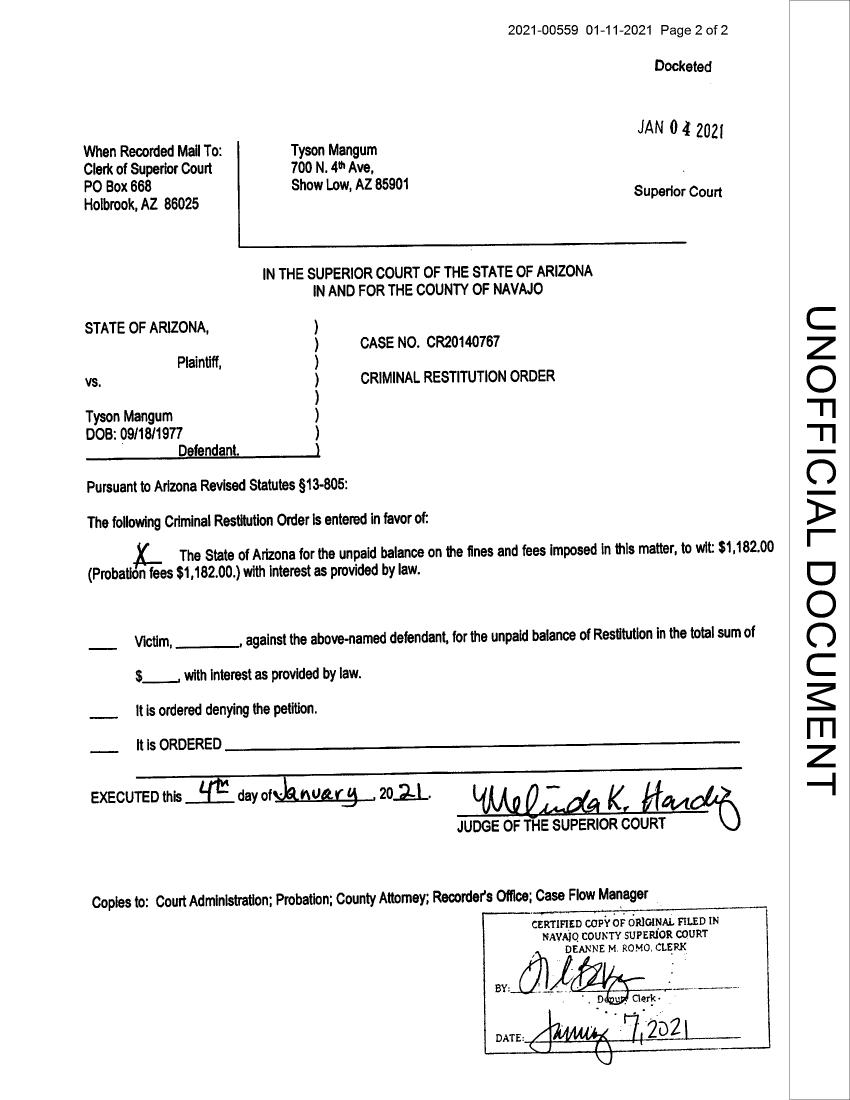 2021-00559 01-11-2021 Page 2 of 2
Docketed
JAN 04 2021
Superior Court
When Recorded Mail To:
Clerk of Superior Court
PO Box 668
Holbrook, AZ 86025
Tyson Mangum
700 N. 4th Ave,
Show Low, AZ 85901
IN THE SUPERIOR COURT OF THE STATE OF ARIZONA
IN AND FOR THE COUNTY OF NAVAJO
STATE OF ARIZONA,
Plaintiff,
vs.
Tyson Mangum
DOB: 09/18/1977
Defendant.
)
)
)
)
)
)
)
)
CASE NO. CR20140767
CRIMINAL RESTITUTION ORDER
Pursuant to Arizona Revised Statutes §13-805:
The following Criminal Restitution Order is entered in favor of:
X The State of Arizona for the unpaid balance on the fines and fees imposed in this matter, to wit: $1,182.00
(Probation fees $1,182.00.) with interest as provided by law.
___ Victim, ________, against the above-named defendant, for the unpaid balance of Restitution in the total sum of
$____, with interest as provided by law.
___ It is ordered denying the petition.
___ It is ORDERED ________
EXECUTED this 4th day of January, 2021.
Melinda K. Hardy
JUDGE OF THE SUPERIOR COURT
Copies to: Court Administration; Probation; County Attorney; Recorder's Office; Case Flow Manager
CERTIFIED COPY OF ORIGINAL FILED IN
NAVAJO COUNTY SUPERIOR COURT
DEANNE M. ROMO, CLERK
BY:
Deputy Clerk
DATE: January 7, 2021
UNOFFICIAL DOCUMENT